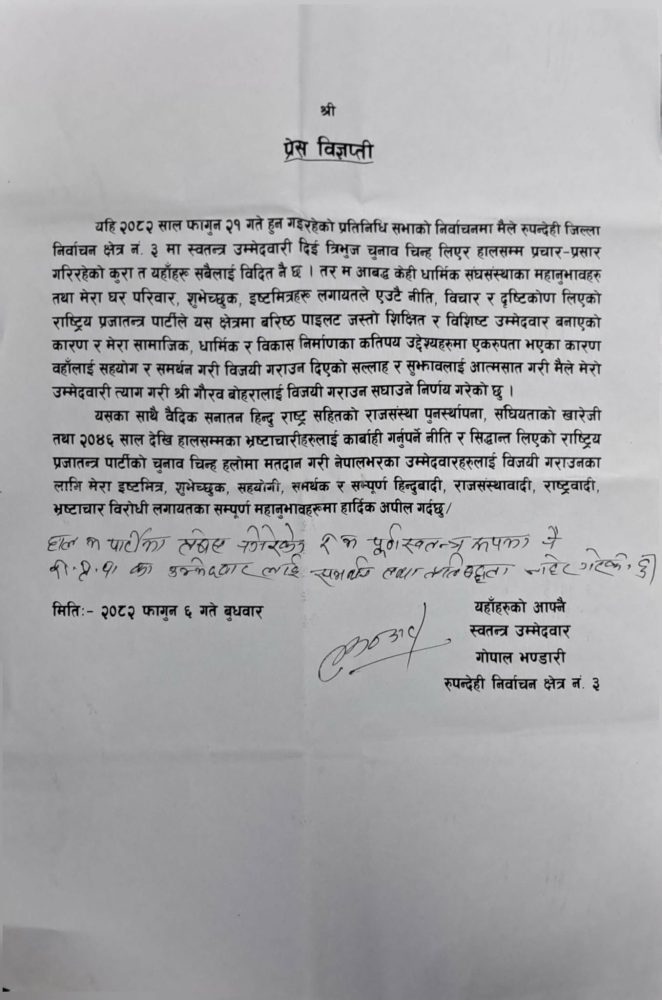 श्री
प्रेस विज्ञप्ती
यहि २०८२ साल फागुन २१ गते हुन गइरहेको प्रतिनिधि सभाको निर्वाचनमा मैले रुपन्देही जिल्ला
निर्वाचन क्षेत्र नं. ३ मा स्वतन्त्र उम्मेदवारी दिई त्रिभुज चुनाव चिन्ह लिएर हालसम्म प्रचार-प्रसार
गरिरहेको कुरा त यहाँहरू सबैलाई विदित नै छ । तर म आबद्ध केही धार्मिक संघसंस्थाका महानुभावहरु
तथा मेरा घर परिवार, शुभेच्छुक, इष्टमित्रहरु लगायतले एउटै नीति, विचार र दृष्टिकोण लिएको
राष्ट्रिय प्रजातन्त्र पार्टीले यस क्षेत्रमा बरिष्ठ पाइलट जस्तो शिक्षित र विशिष्ट उम्मेदवार बनाएको
कारण र मेरा सामाजिक, धार्मिक र विकास निर्माणका कतिपय उद्देश्यहरुमा एकरुपता भएका कारण
वहाँलाई सहयोग र समर्थन गरी विजयी गराउन दिएको सल्लाह र सुझावलाई आत्मसात गरी मैले मेरो
उम्मेदवारी त्याग गरी श्री गौरव बोहरालाई विजयी गराउन सघाउने निर्णय गरेको छु ।
यसका साथै वैदिक सनातन हिन्दु राष्ट्र सहितको राजसंस्था पुनर्स्थापना, संघियताको खारेजी
तथा २०४६ साल देखि हालसम्मका भ्रष्टाचारीहरुलाई कार्बाही गर्नुपर्ने नीति र सिद्धान्त लिएको राष्ट्रिय
प्रजातन्त्र पार्टीको चुनाव चिन्ह हलोमा मतदान गरी नेपालभरका उम्मेदवारहरुलाई विजयी गराउनका
लागि मेरा इष्टमित्र, शुभेच्छुक, सहयोगी, समर्थक र सम्पूर्ण हिन्दुबादी, राजसंस्थावादी, राष्ट्रवादी,
भ्रष्टाचार विरोधी लगायतका सम्पूर्ण महानुभावहरूमा हार्दिक अपील गर्दछु/
हाल म पार्टीमा र म पूर्ण स्वतन्त्र रूपमा नै
रा.प्र.पा का उम्मेदवार लाई समर्थन तथा प्रतिबद्धता जाहेर गरेको छु
मितिः- २०८२ फागुन ६ गते बुधवार
यहाँहरुको आफ्नै
स्वतन्त्र उम्मेदवार
गोपाल भण्डारी
रुपन्देही निर्वाचन क्षेत्र नं. ३